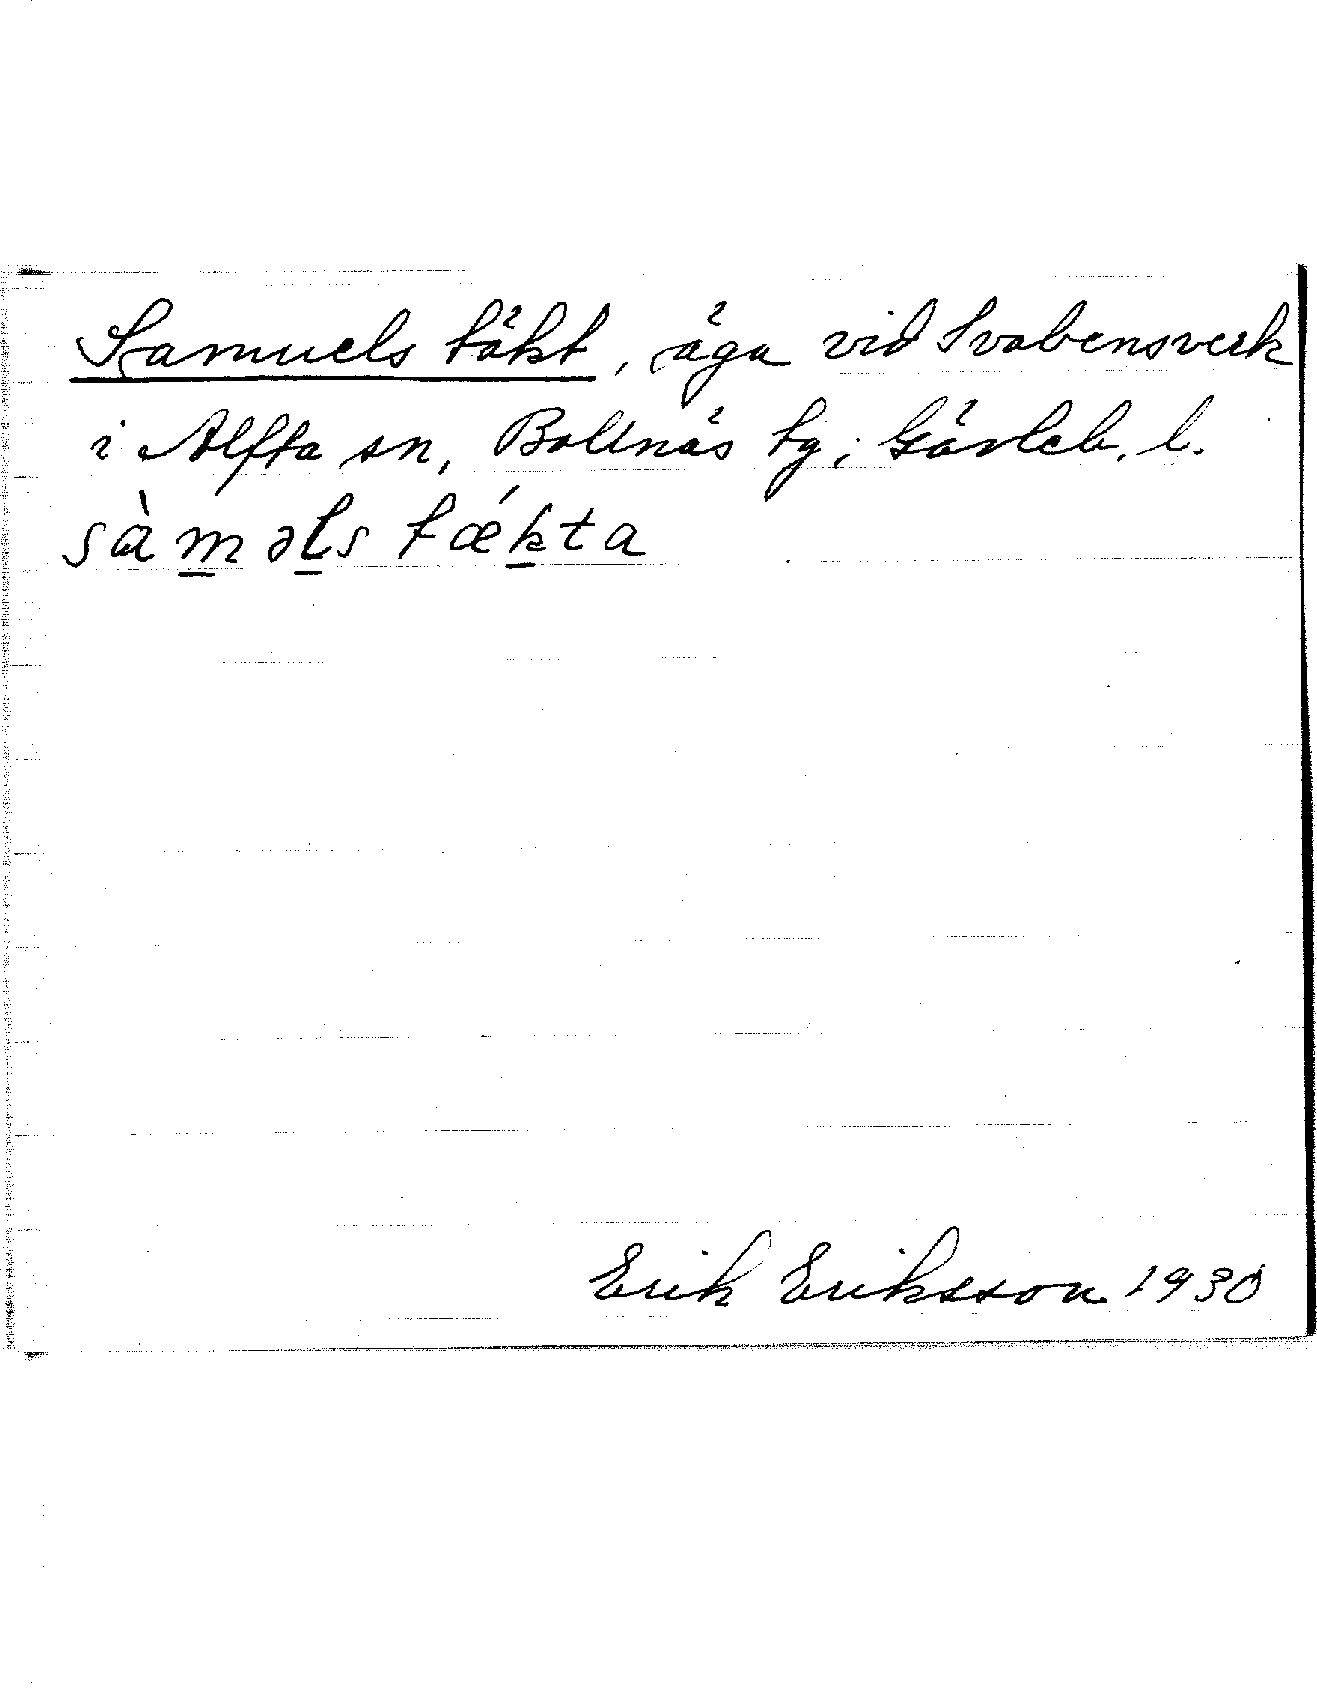 Samuels täkt, äga vid Svabensverk
i Alfta sn, Bollnäs tg; Gävleb. l.
sàm̲əl̲s tǽk̲ta
Erik Eriksson 1930